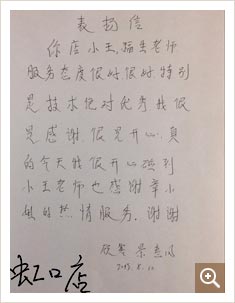 表扬信
你店小王, 老师
服务态度很好很好特别
是技术绝对优秀我很
是感谢.很是开心.真
的今天我很开心碰到
小王老师也感谢章小
姐的热情服务.谢谢
顾客
虹口店